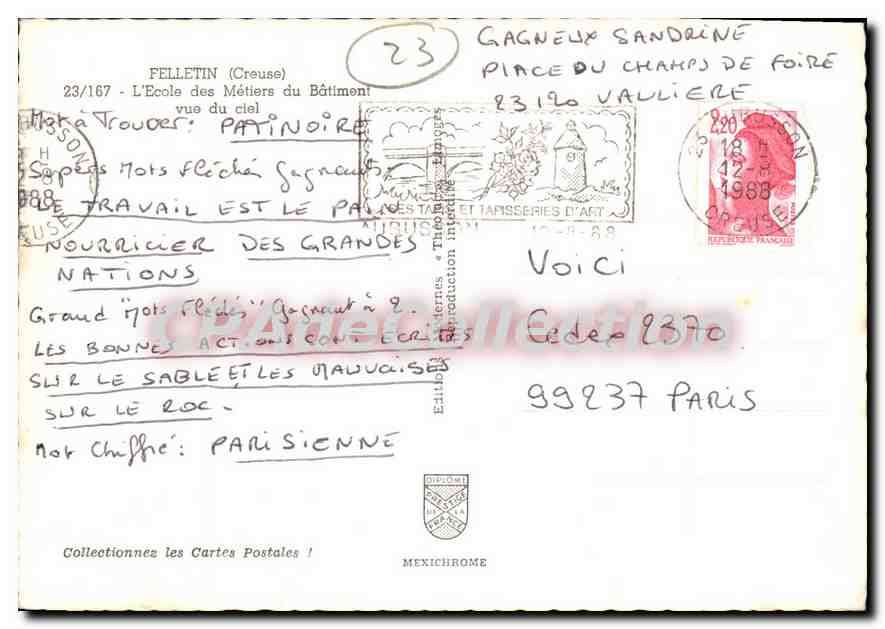 23
GAGNEUX SANDRINE
PLACE DU CHAMPS DE FOIRE
23120 VALLIERE
FELLETIN (Creuse)
23/167 - L'Ecole des Métiers du Bâtiment
vue du ciel
Mot à Trouver: PATINOIRE
Supers Mots Fléchés Gagnants
LE TRAVAIL EST LE PAIN
NOURRICIER DES GRANDES
NATIONS
Grand "Mots Fléchés" Gagnant à 2.
LES BONNES ACTIONS SONT ECRITES
SUR LE SABLE ET LES MAUVAISES
SUR LE ROC.
Mot Chiffré: PARISIENNE
Collectionnez les Cartes Postales !
Editions Modernes « Théojac » Limoges
Reproduction interdite
DIPLÔME
PRESTIGE
DE LA
FRANCE
MEXICHROME
ET TAPISSERIES D'ART
AUBUSSON 12-8-88
23 AUBUSSON
18 H
12-8
1988
CREUSE
2,20
REPUBLIQUE FRANÇAISE
VOICI
Cedex 2370
99237 PARIS
CPAdeCollection